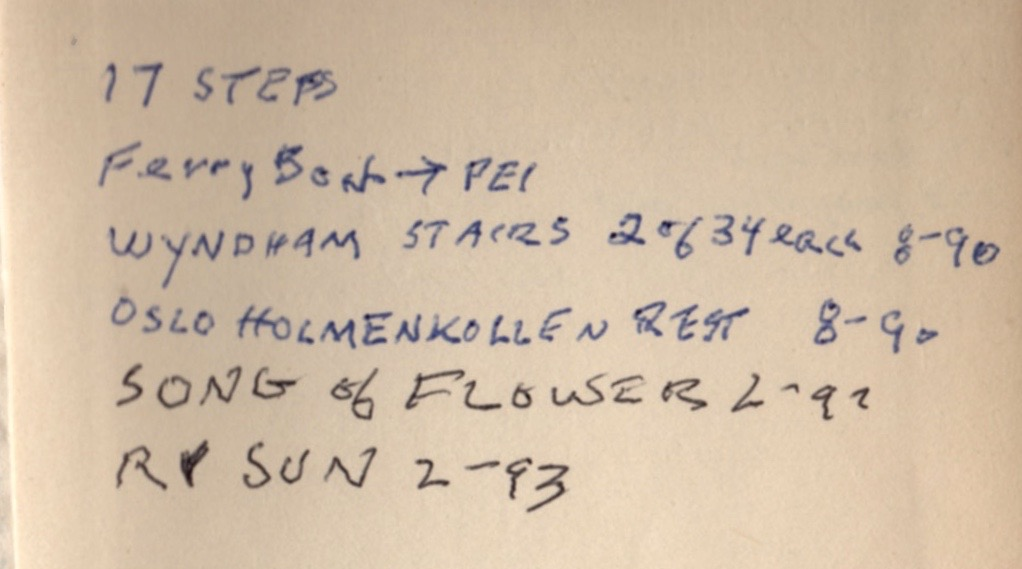 17 STEPS
Ferry Boat → PEI
WYNDHAM STAIRS 2 of 34 each 8-90
OSLO HOLMENKOLLEN REST 8-90
SONG of FLOWER 2-92
RP SUN 2-93